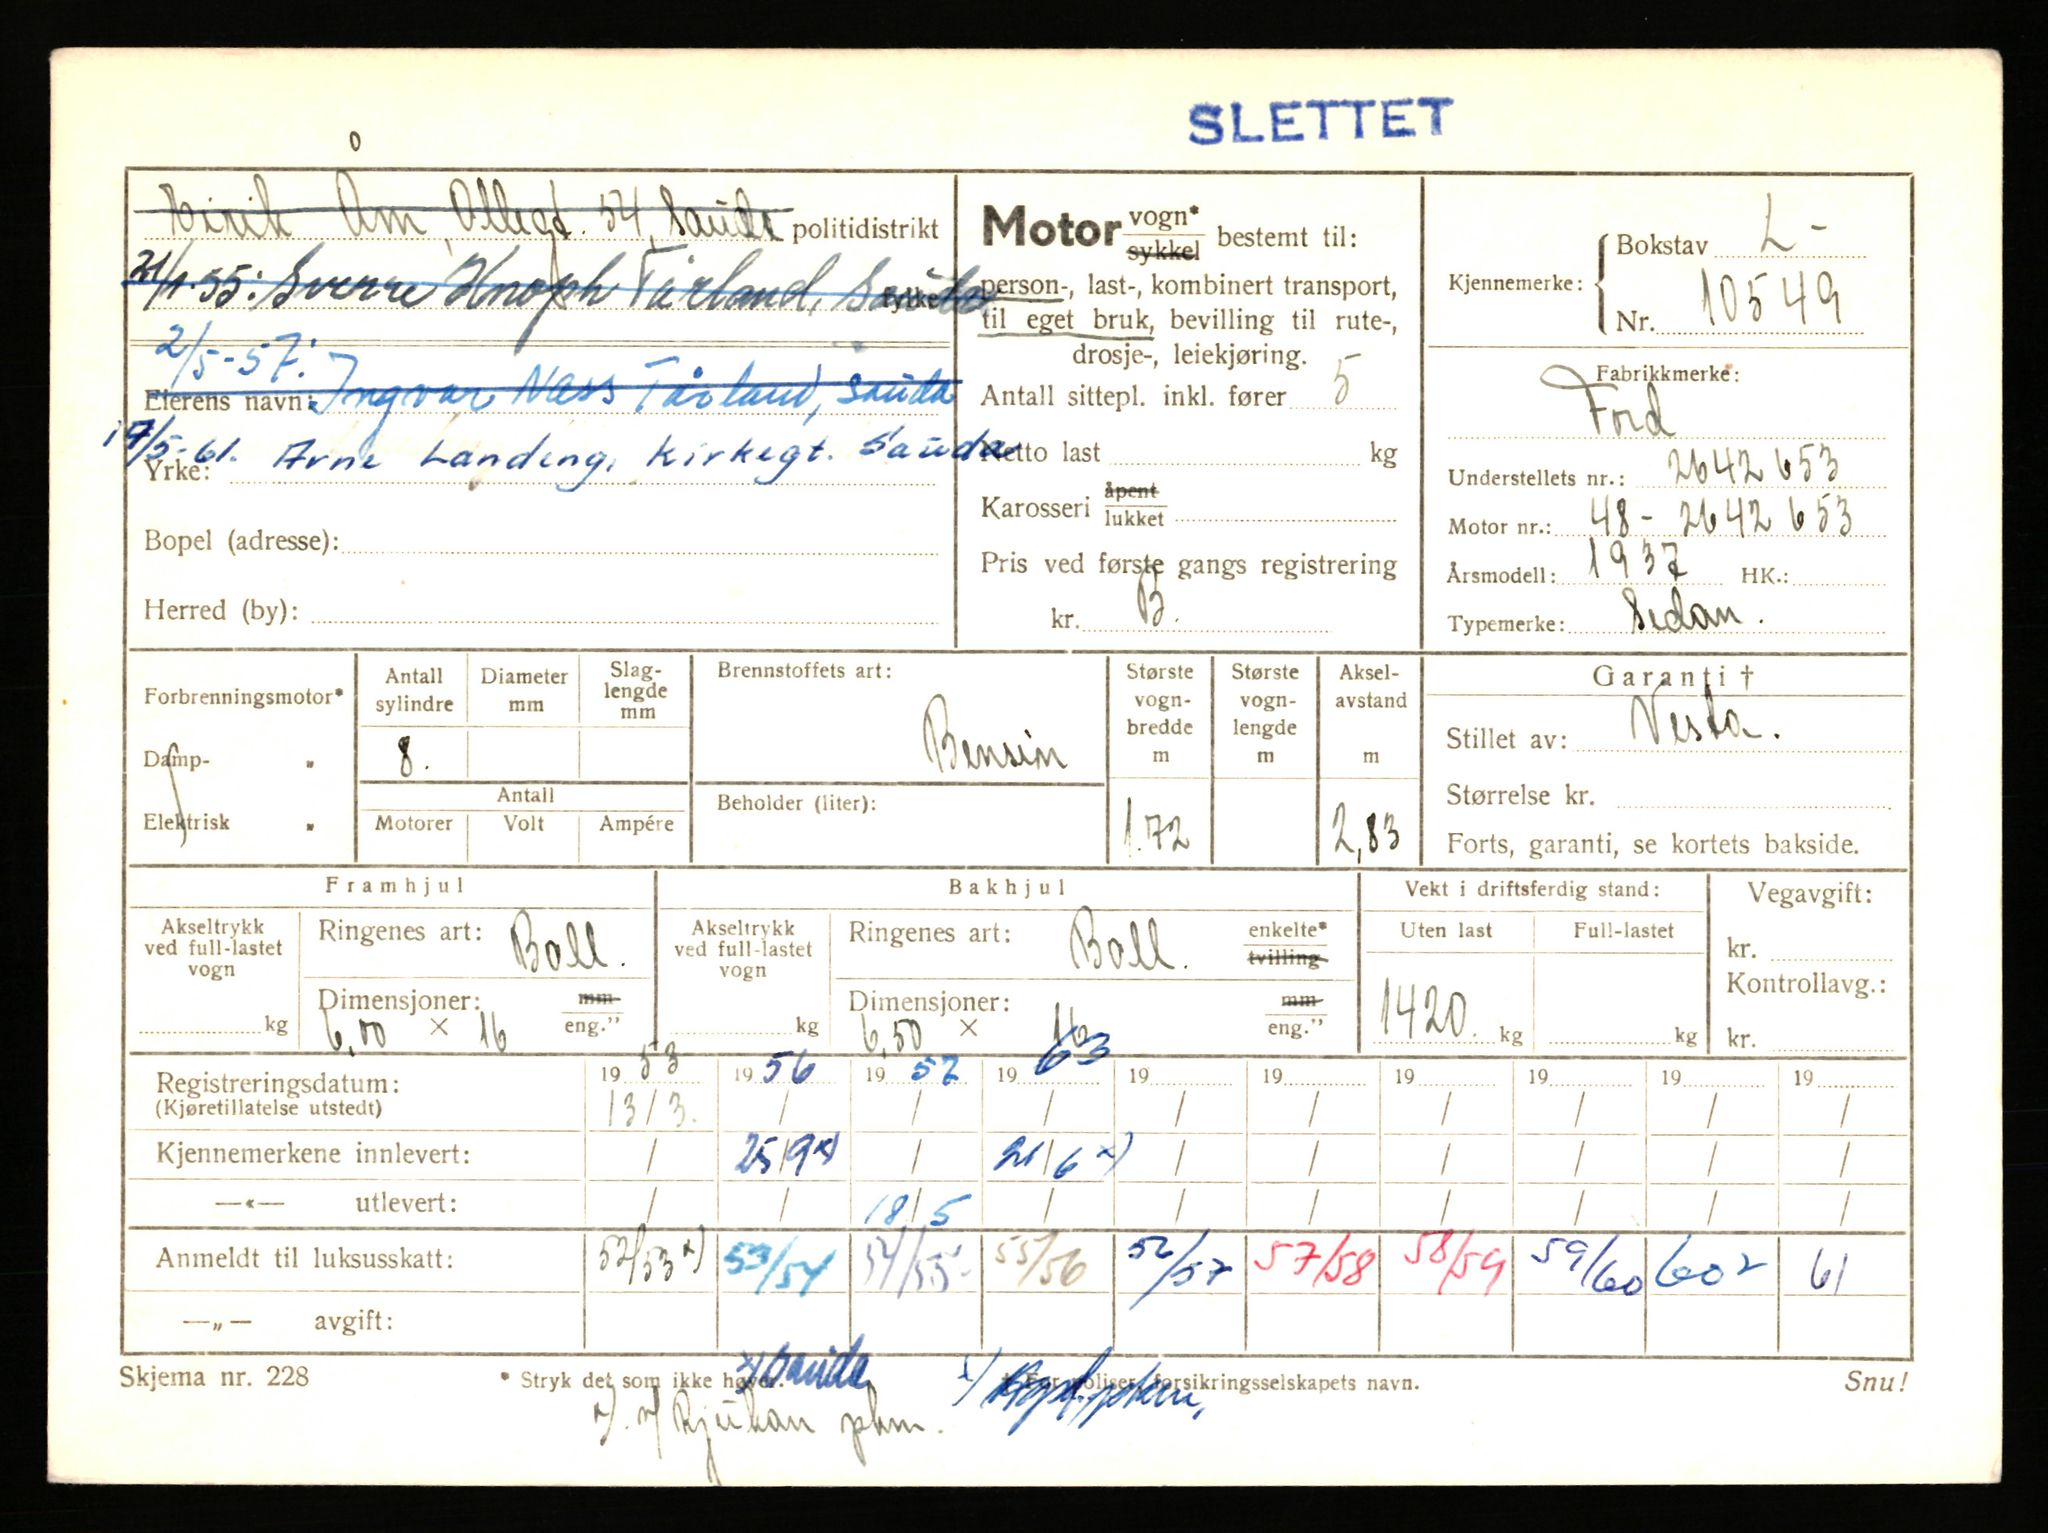 SLETTET
Å
Eirik Åm, Allegt. 54, Sauda politidistrikt
21/1-55: Sverre Knoph Tårland, Sauda fylke
2/5-57:
Eierens navn: Ingvar Næss Tårland, Sauda
17/5-61. Arne Landeng, Kirkegt. Sauda
Yrke:
Bopel (adresse):
Herred (by):
Motor vogn* sykkel bestemt til:
person-, last-, kombinert transport,
til eget bruk, bevilling til rute-,
drosje-, leiekjøring.
Antall sittepl. inkl. fører 5
Netto last kg
Karosseri åpent lukket
Pris ved første gangs registrering
kr. B.
Kjennemerke: Bokstav L-
Nr. 10549
Fabrikkmerke:
Ford
Understellets nr.: 2642653
Motor nr.: 48-2642653
Årsmodell: 1937 HK.:
Typemerke: Sedan.
Forbrenningsmotor*
Damp- "
Elektrisk "
Antall sylindre Diameter mm Slag-lengde mm
8.
Antall
Motorer Volt Ampére
Brennstoffets art:
Bensin
Beholder (liter):
Største vogn-bredde m Største vogn-lengde m Aksel-avstand m
1.72 2,83
Garanti †
Stillet av: Vesta.
Størrelse kr.
Forts, garanti, se kortets bakside.
Framhjul
Akseltrykk ved full-lastet vogn
kg
Ringenes art: Ball.
Dimensjoner: mm
6,00 × 16 eng."
Bakhjul
Akseltrykk ved full-lastet vogn
kg
Ringenes art: Ball. enkelte* tvilling
Dimensjoner: mm
6,50 × 16 eng."
Vekt i driftsferdig stand:
Uten last Full-lastet
1420. kg kg
Vegavgift:
kr.
Kontrollavg.:
kr.
Registreringsdatum: 1953 1956 1957 1963 19 19 19 19 19 19
(Kjøretillatelse utstedt) 13/3. / / / / / / / / /
Kjennemerkene innlevert: / 25/9x) / 21/6x) / / / / / /
—«— utlevert: / / 18/5 / / / / / / /
Anmeldt til luksusskatt: 52/53x) 53/54 54/55 55/56 56/57 57/58 58/59 59/60 602 61
—„— avgift:
Skjema nr. 228
* Stryk det som ikke høver.
x) Sauda
† For poliser, forsikringsselskapets navn.
Snu!
x). v/Rjukan pkm.